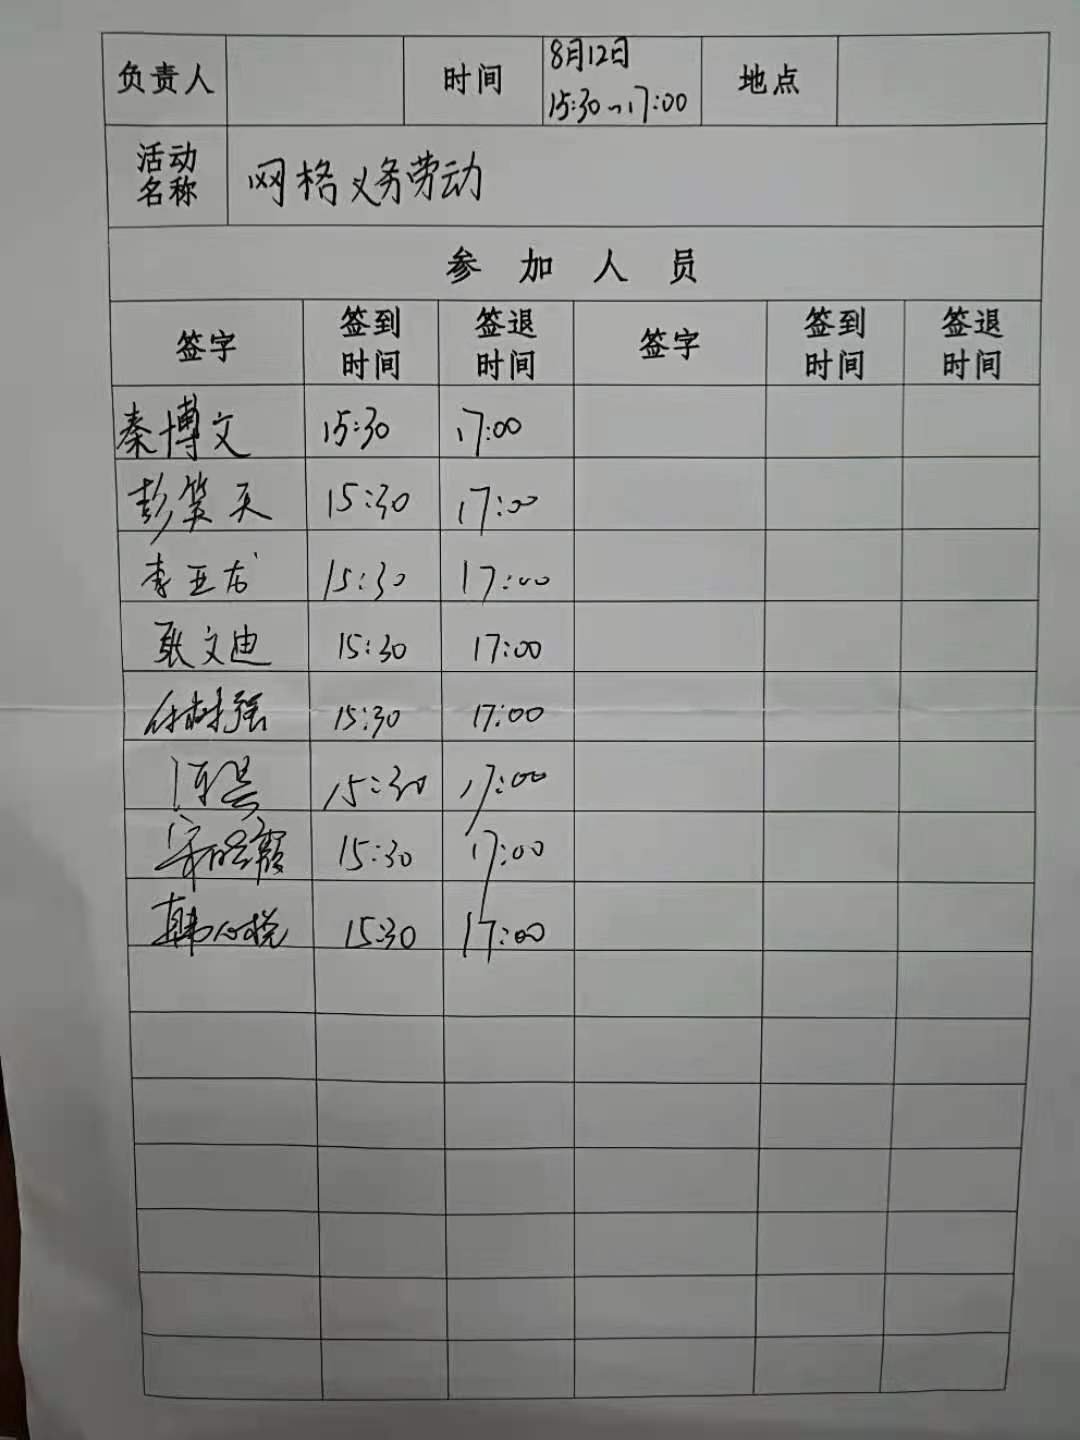 负责人 时间 8月12日 15:30~17:00 地点
活动名称 网格义务劳动
参加人员
签字 签到时间 签退时间 签字 签到时间 签退时间
秦博文 15:30 17:00
彭笑天 15:30 17:00
李亚龙 15:30 17:00
耿文迪 15:30 17:00
付树强 15:30 17:00
15:30 17:00
15:30 17:00
韩 15:30 17:00